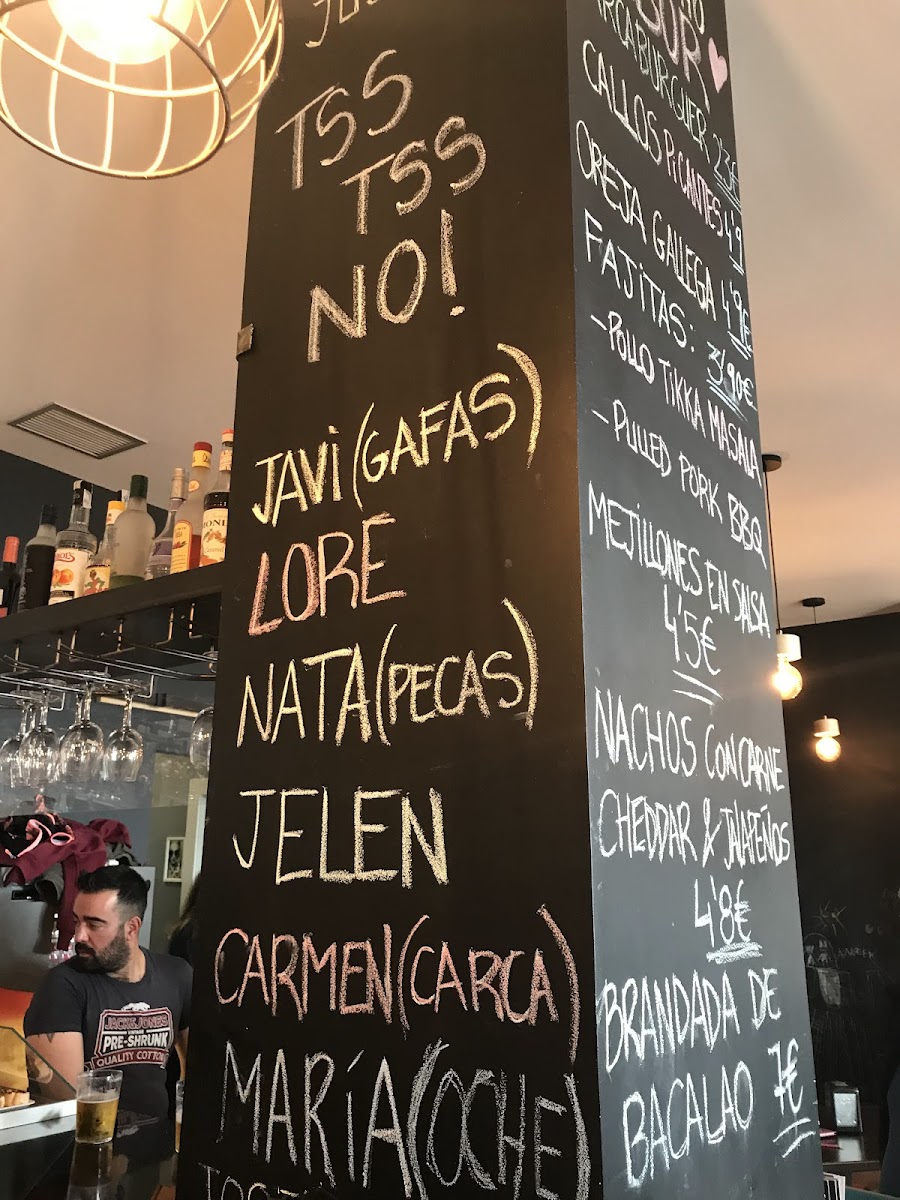 TSS
TSS
NO!
JAVI (GAFAS)
LORE
NATA (PECAS)
JELEN
CARMEN (CARCA)
MARÍA (OCHE)
CALLOS PICANTES 4'9
OREJA GALLEGA 4'9€
FAJITAS: 3'90€
-POLLO TIKKA MASALA
-PULLED PORK BBQ
MEJILLONES EN SALSA
4'5€
NACHOS CON CARNE
CHEDDAR & JALAPEÑOS
4'8€
BRANDADA DE
BACALAO 7€
JACK&JONES
VINTAGE
PRE-SHRUNK
QUALITY COTTON